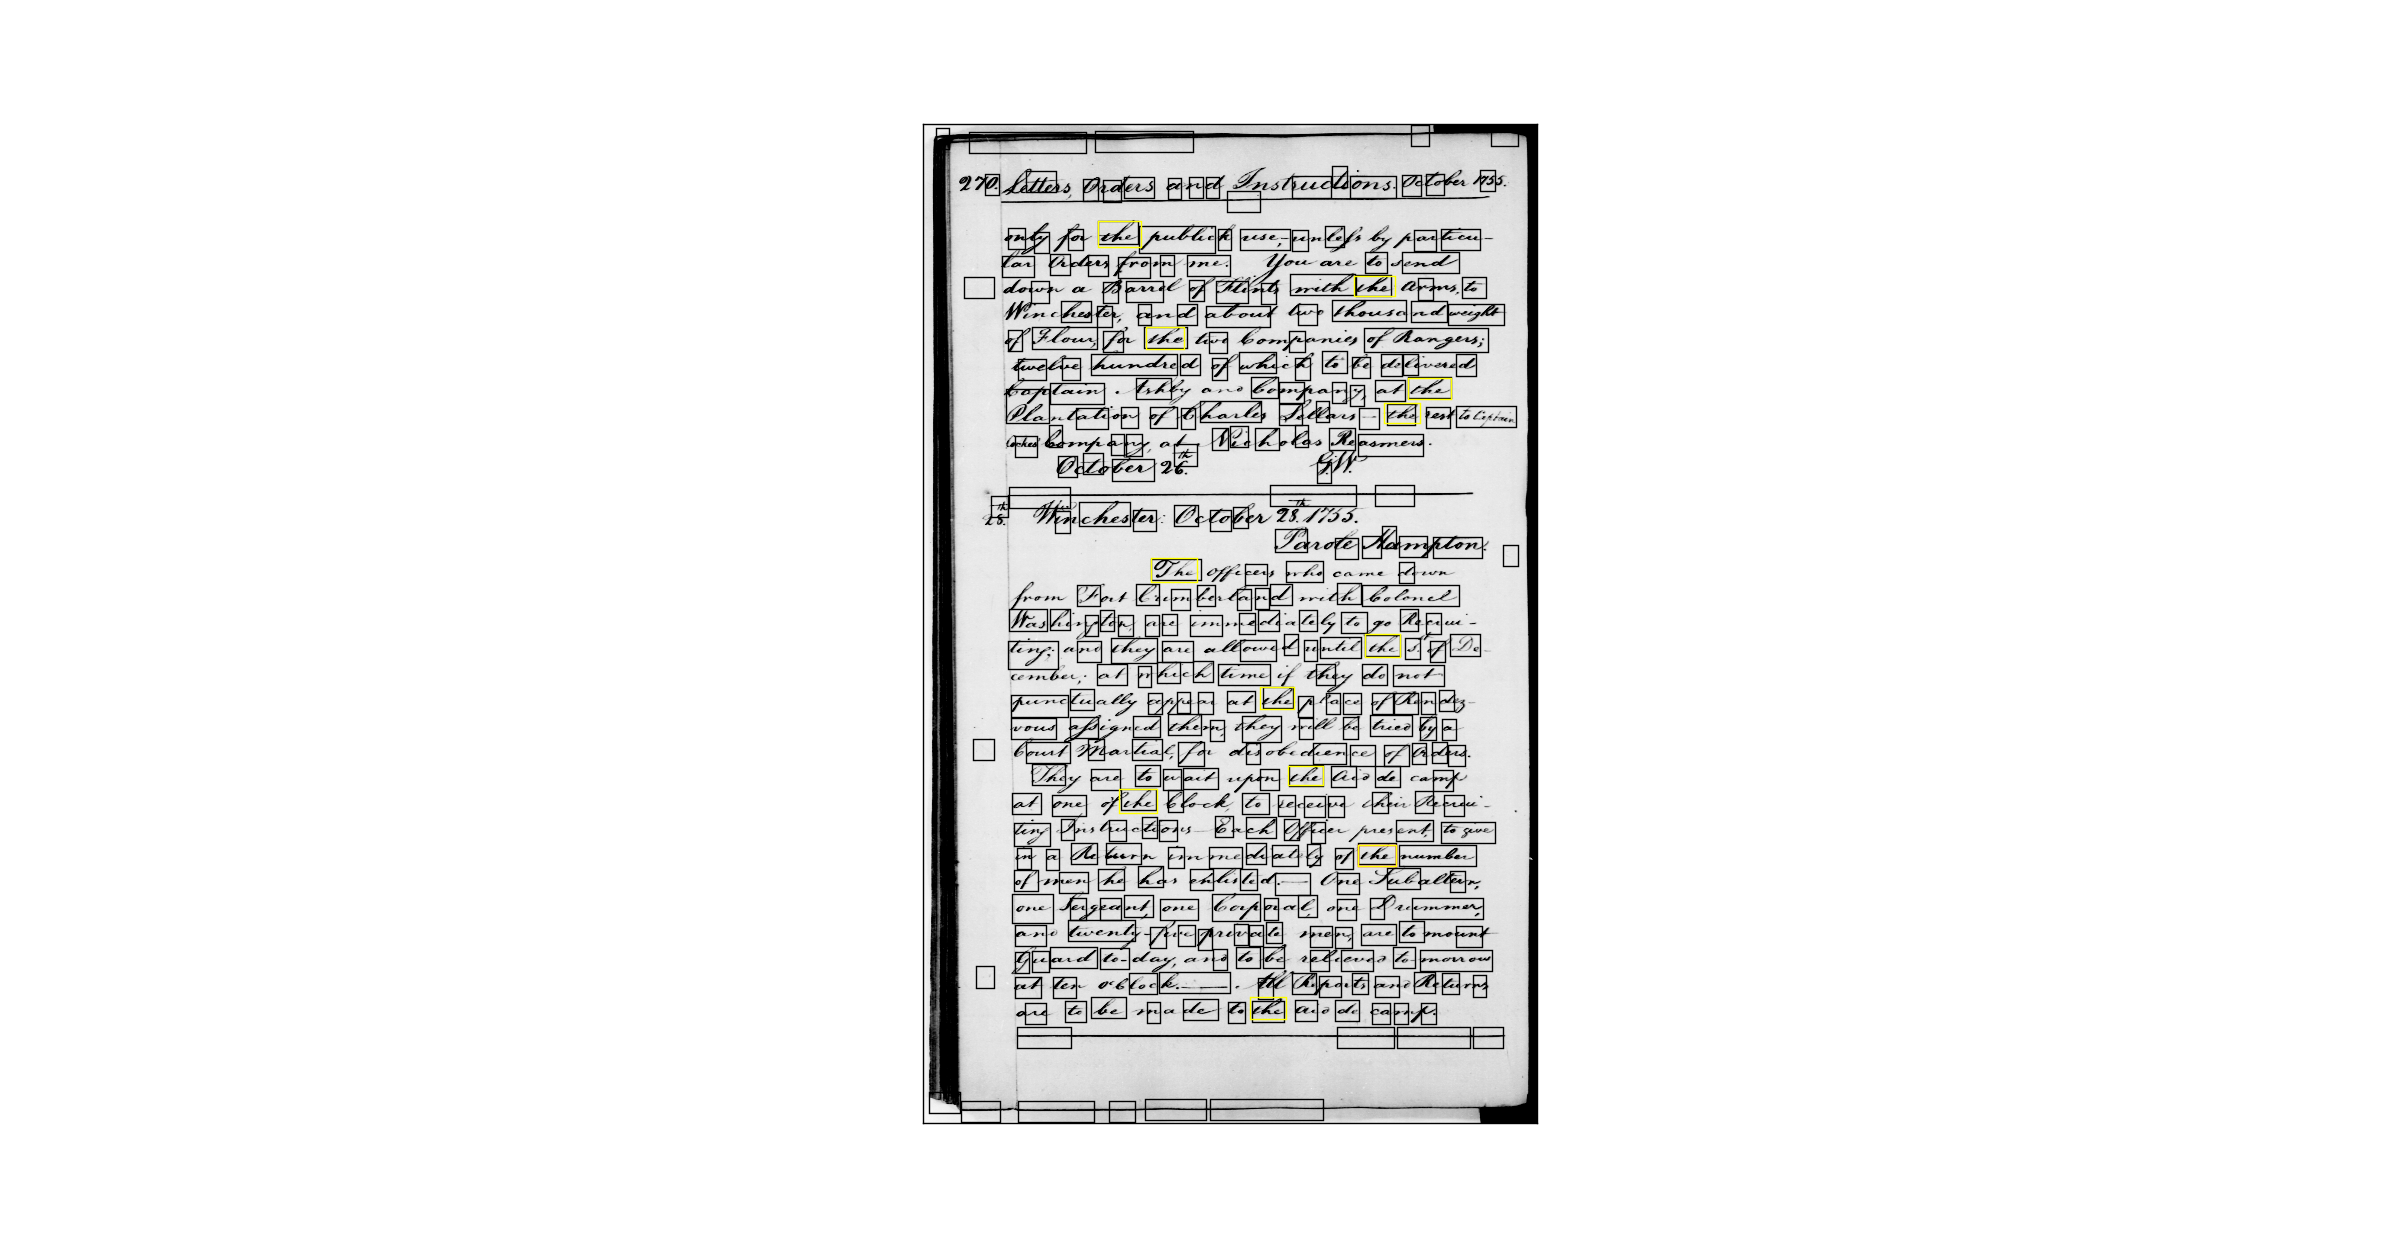 270. Letters, Orders and Instructions. October 1755.
only for the publick use, unless by particu-
lar Orders from me. You are to send
down a Barrel of Flints with the Arms, to
Winchester, and about two thousand weight
of Flour, for the two Companies of Rangers;
twelve hundred of which to be delivered
Captain Ashby and Company, at the
Plantation of Charles Sellars — the rest to Captain
Cockes Company, at Nicholas Reasmers.
October 26.th G.W.
28.th Winchester: October 28.th 1755.
Parole Hampton.
The Officers who came down
from Fort Cumberland with Colonel
Washington, are immediately to go Recrui-
ting; and they are allowed until the 1.st of De-
cember; at which time if they do not
punctually appear at the place of Rendez-
vous assigned them, they will be tried by a
Court Martial, for disobedience of Orders.
They are to wait upon the Aid de camp
at one of the Clock, to receive their Recrui-
ting Instructions — Each Officer present, to give
in a Return immediately of the number
of men he has enlisted. — One Subaltern,
one Sergeant, one Corporal, one Drummer,
and twenty-five private men, are to mount
Guard to-day, and to be relieved to-morrow
at ten o'Clock. — . All Reports and Returns
are to be made to the Aid de camp.